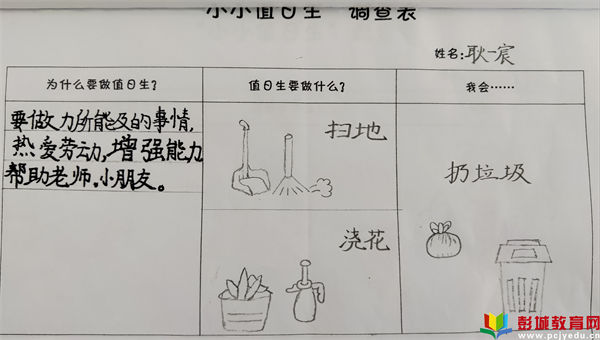 小小值日生 调查表
姓名:耿一宸
为什么要做值日生?
值日生要做什么?
我会……
要做力所能及的事情,
热爱劳动,增强能力
帮助老师.小朋友。
扫地
浇花
扔垃圾
彭城教育网
www.pcjyedu.cn